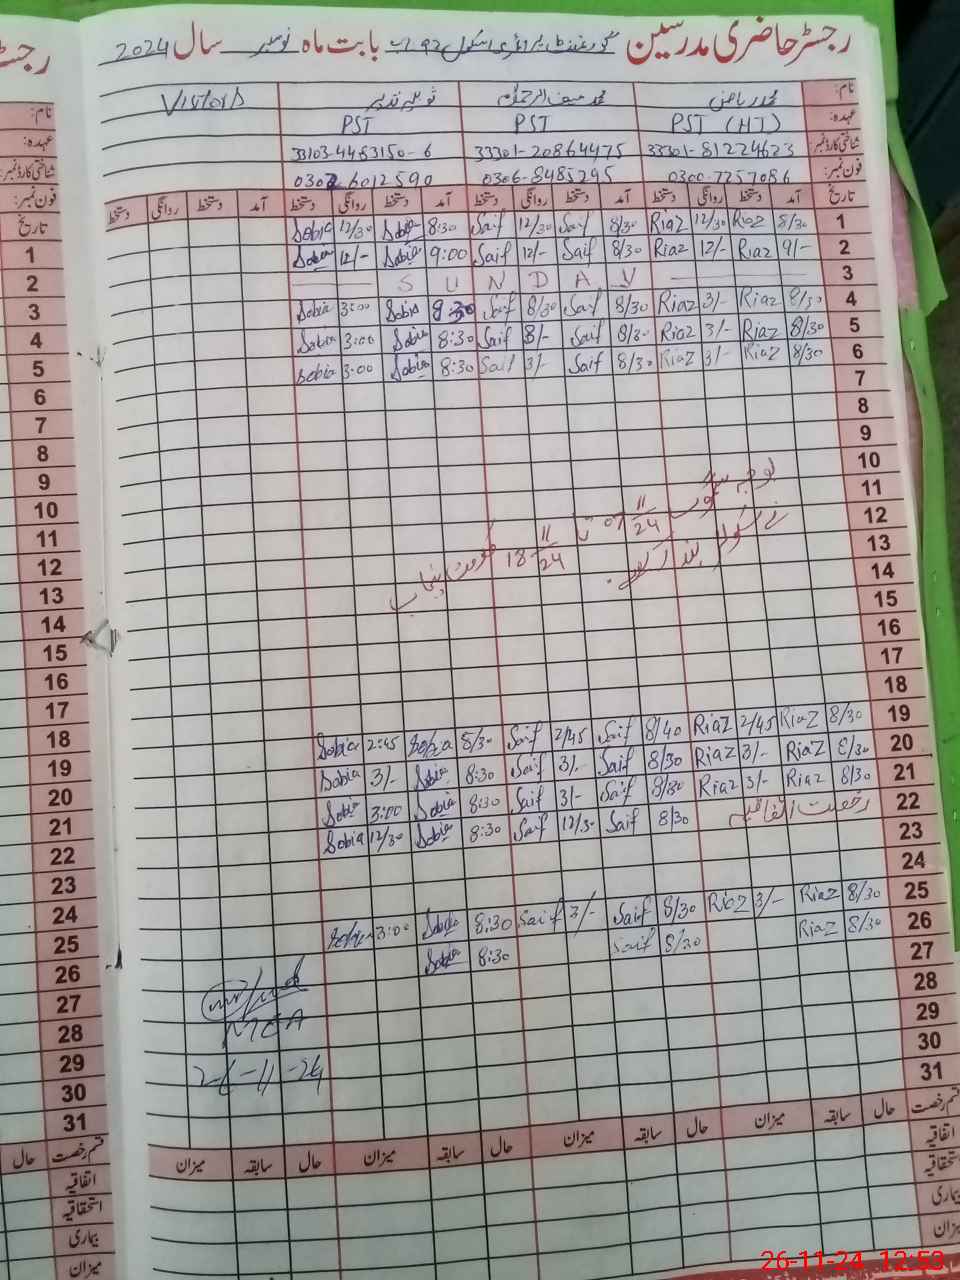 رجسٹر حاضری مدرسین گورنمنٹ پرائمری سکول 92 ج ب بابت ماہ نومبر سال 2024
نام: محمد ریاض محمد سیف الرحمان ثوبیہ Visitors
عہدہ: PST (HT) PST PST
شناختی کارڈ نمبر: 33301-81224623 33301-20864475 33103-4483150-6
فون نمبر: 0300-7257086 0306-8485295 0302 6012590
تاریخ آمد دستخط روانگی دستخط آمد دستخط روانگی دستخط آمد دستخط روانگی دستخط آمد دستخط روانگی دستخط
1 8/30 Riaz 12/30 Riaz 8/30 Saif 12/30 Saif 8:30 Sobia 12/30 Sobia
2 9/- Riaz 12/- Riaz 8/30 Saif 12/- Saif 9:00 Sobia 12/- Sobia
3 SUNDAY
4 8/30 Riaz 3/- Riaz 8/30 Saif 8/30 Saif 8:30 Sobia 3:00 Sobia
5 8/30 Riaz 3/- Riaz 8/30 Saif 3/- Saif 8:30 Sobia 3:00 Sobia
6 8/30 Riaz 3/- Riaz 8/30 Saif 3/- Saif 8:30 Sobia 3:00 Sobia
7
8
9
10
11 بوجہ سموگ 07 11/24 تا 18 11/24 حکومت پنجاب
12
13 نے سکول بند کر
14
15
16
17
18
19 8/30 Riaz 2/45 Riaz 8/40 Saif 2/45 Saif 8/30 Sobia 2:45 Sobia
20 8/30 Riaz 3/- Riaz 8/30 Saif 3/- Saif 8:30 Sobia 3/- Sobia
21 8/30 Riaz 3/- Riaz 8/30 Saif 3/- Saif 8:30 Sobia 3:00 Sobia
22 رخصت اتفاقیہ 8/30 Saif 12/30 Saif 8:30 Sobia 12/30 Sobia
23
24
25 8/30 Riaz 3/- Riaz 8/30 Saif 3/- Saif 8:30 Sobia 3:00 Sobia
26 8/30 Riaz 8/30 Saif 8:30 Sobia
27
28
29
30
31
MEA
26-11-24
قسم رخصت حال سابقہ میزان حال سابقہ میزان حال سابقہ میزان حال سابقہ میزان
اتفاقیہ
استحقاقیہ
بیماری
میزان
رجسٹر
نام:
عہدہ:
شناختی کارڈ نمبر:
فون نمبر:
تاریخ
1
2
3
4
5
6
7
8
9
10
11
12
13
14
15
16
17
18
19
20
21
22
23
24
25
26
27
28
29
30
31
قسم رخصت حال
اتفاقیہ
استحقاقیہ
بیماری
میزان
26-11-24 12:53